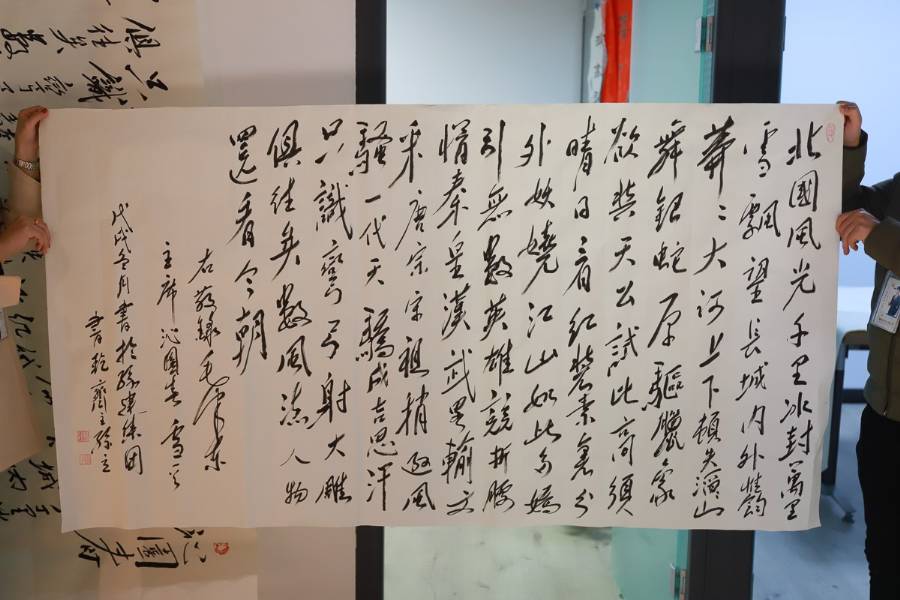 北國風光千里冰封萬里
雪飄望長城内外惟餘
莽〻大河上下頓失滔〻山
舞銀蛇原驅臘象
欲與天公試比高須
晴日看紅裝素裹分
外妖嬈江山如此多嬌
引無數英雄競折腰
惜秦皇漢武略輸文
采唐宗宋祖稍遜風
騷一代天驕成吉思汗
只識彎弓射大雕
俱往矣數風流人物
還看今朝
右敬錄毛澤東
主席沁園春雪
戊戌冬月書於
書乾齋主孫立
俱往矣數
沁園春